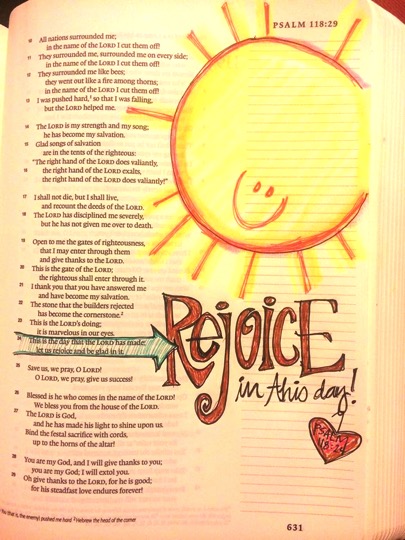 PSALM 118:29
10 All nations surrounded me;
in the name of the LORD I cut them off!
11 They surrounded me, surrounded me on every side;
in the name of the LORD I cut them off!
12 They surrounded me like bees;
they went out like a fire among thorns;
in the name of the LORD I cut them off!
13 I was pushed hard,¹ so that I was falling,
but the LORD helped me.
14 The LORD is my strength and my song;
he has become my salvation.
15 Glad songs of salvation
are in the tents of the righteous:
"The right hand of the LORD does valiantly,
16 the right hand of the LORD exalts,
the right hand of the LORD does valiantly!"
17 I shall not die, but I shall live,
and recount the deeds of the LORD.
18 The LORD has disciplined me severely,
but he has not given me over to death.
19 Open to me the gates of righteousness,
that I may enter through them
and give thanks to the LORD.
20 This is the gate of the LORD;
the righteous shall enter through it.
21 I thank you that you have answered me
and have become my salvation.
22 The stone that the builders rejected
has become the cornerstone.²
23 This is the LORD's doing;
it is marvelous in our eyes.
24 This is the day that the LORD has made;
let us rejoice and be glad in it.
25 Save us, we pray, O LORD!
O LORD, we pray, give us success!
26 Blessed is he who comes in the name of the LORD!
We bless you from the house of the LORD.
27 The LORD is God,
and he has made his light to shine upon us.
Bind the festal sacrifice with cords,
up to the horns of the altar!
28 You are my God, and I will give thanks to you;
you are my God; I will extol you.
29 Oh give thanks to the LORD, for he is good;
for his steadfast love endures forever!
(that is, the enemy) pushed me hard ² Hebrew the head of the corner
REJOICE
in this day!
631